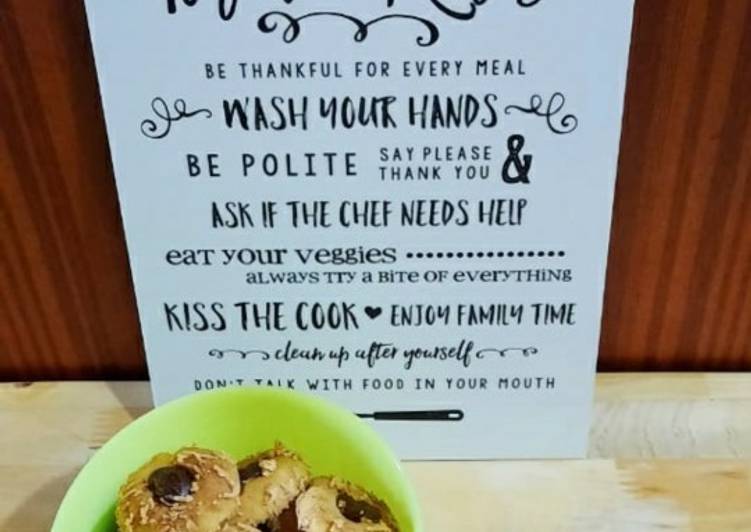 BE THANKFUL FOR EVERY MEAL
WASH YOUR HANDS
BE POLITE SAY PLEASE & THANK YOU
ASK IF THE CHEF NEEDS HELP
eat your veggies
ALWAYS TRY A BITE OF EVERYTHING
KISS THE COOK ENJOY FAMILY TIME
clean up after yourself
DON'T TALK WITH FOOD IN YOUR MOUTH